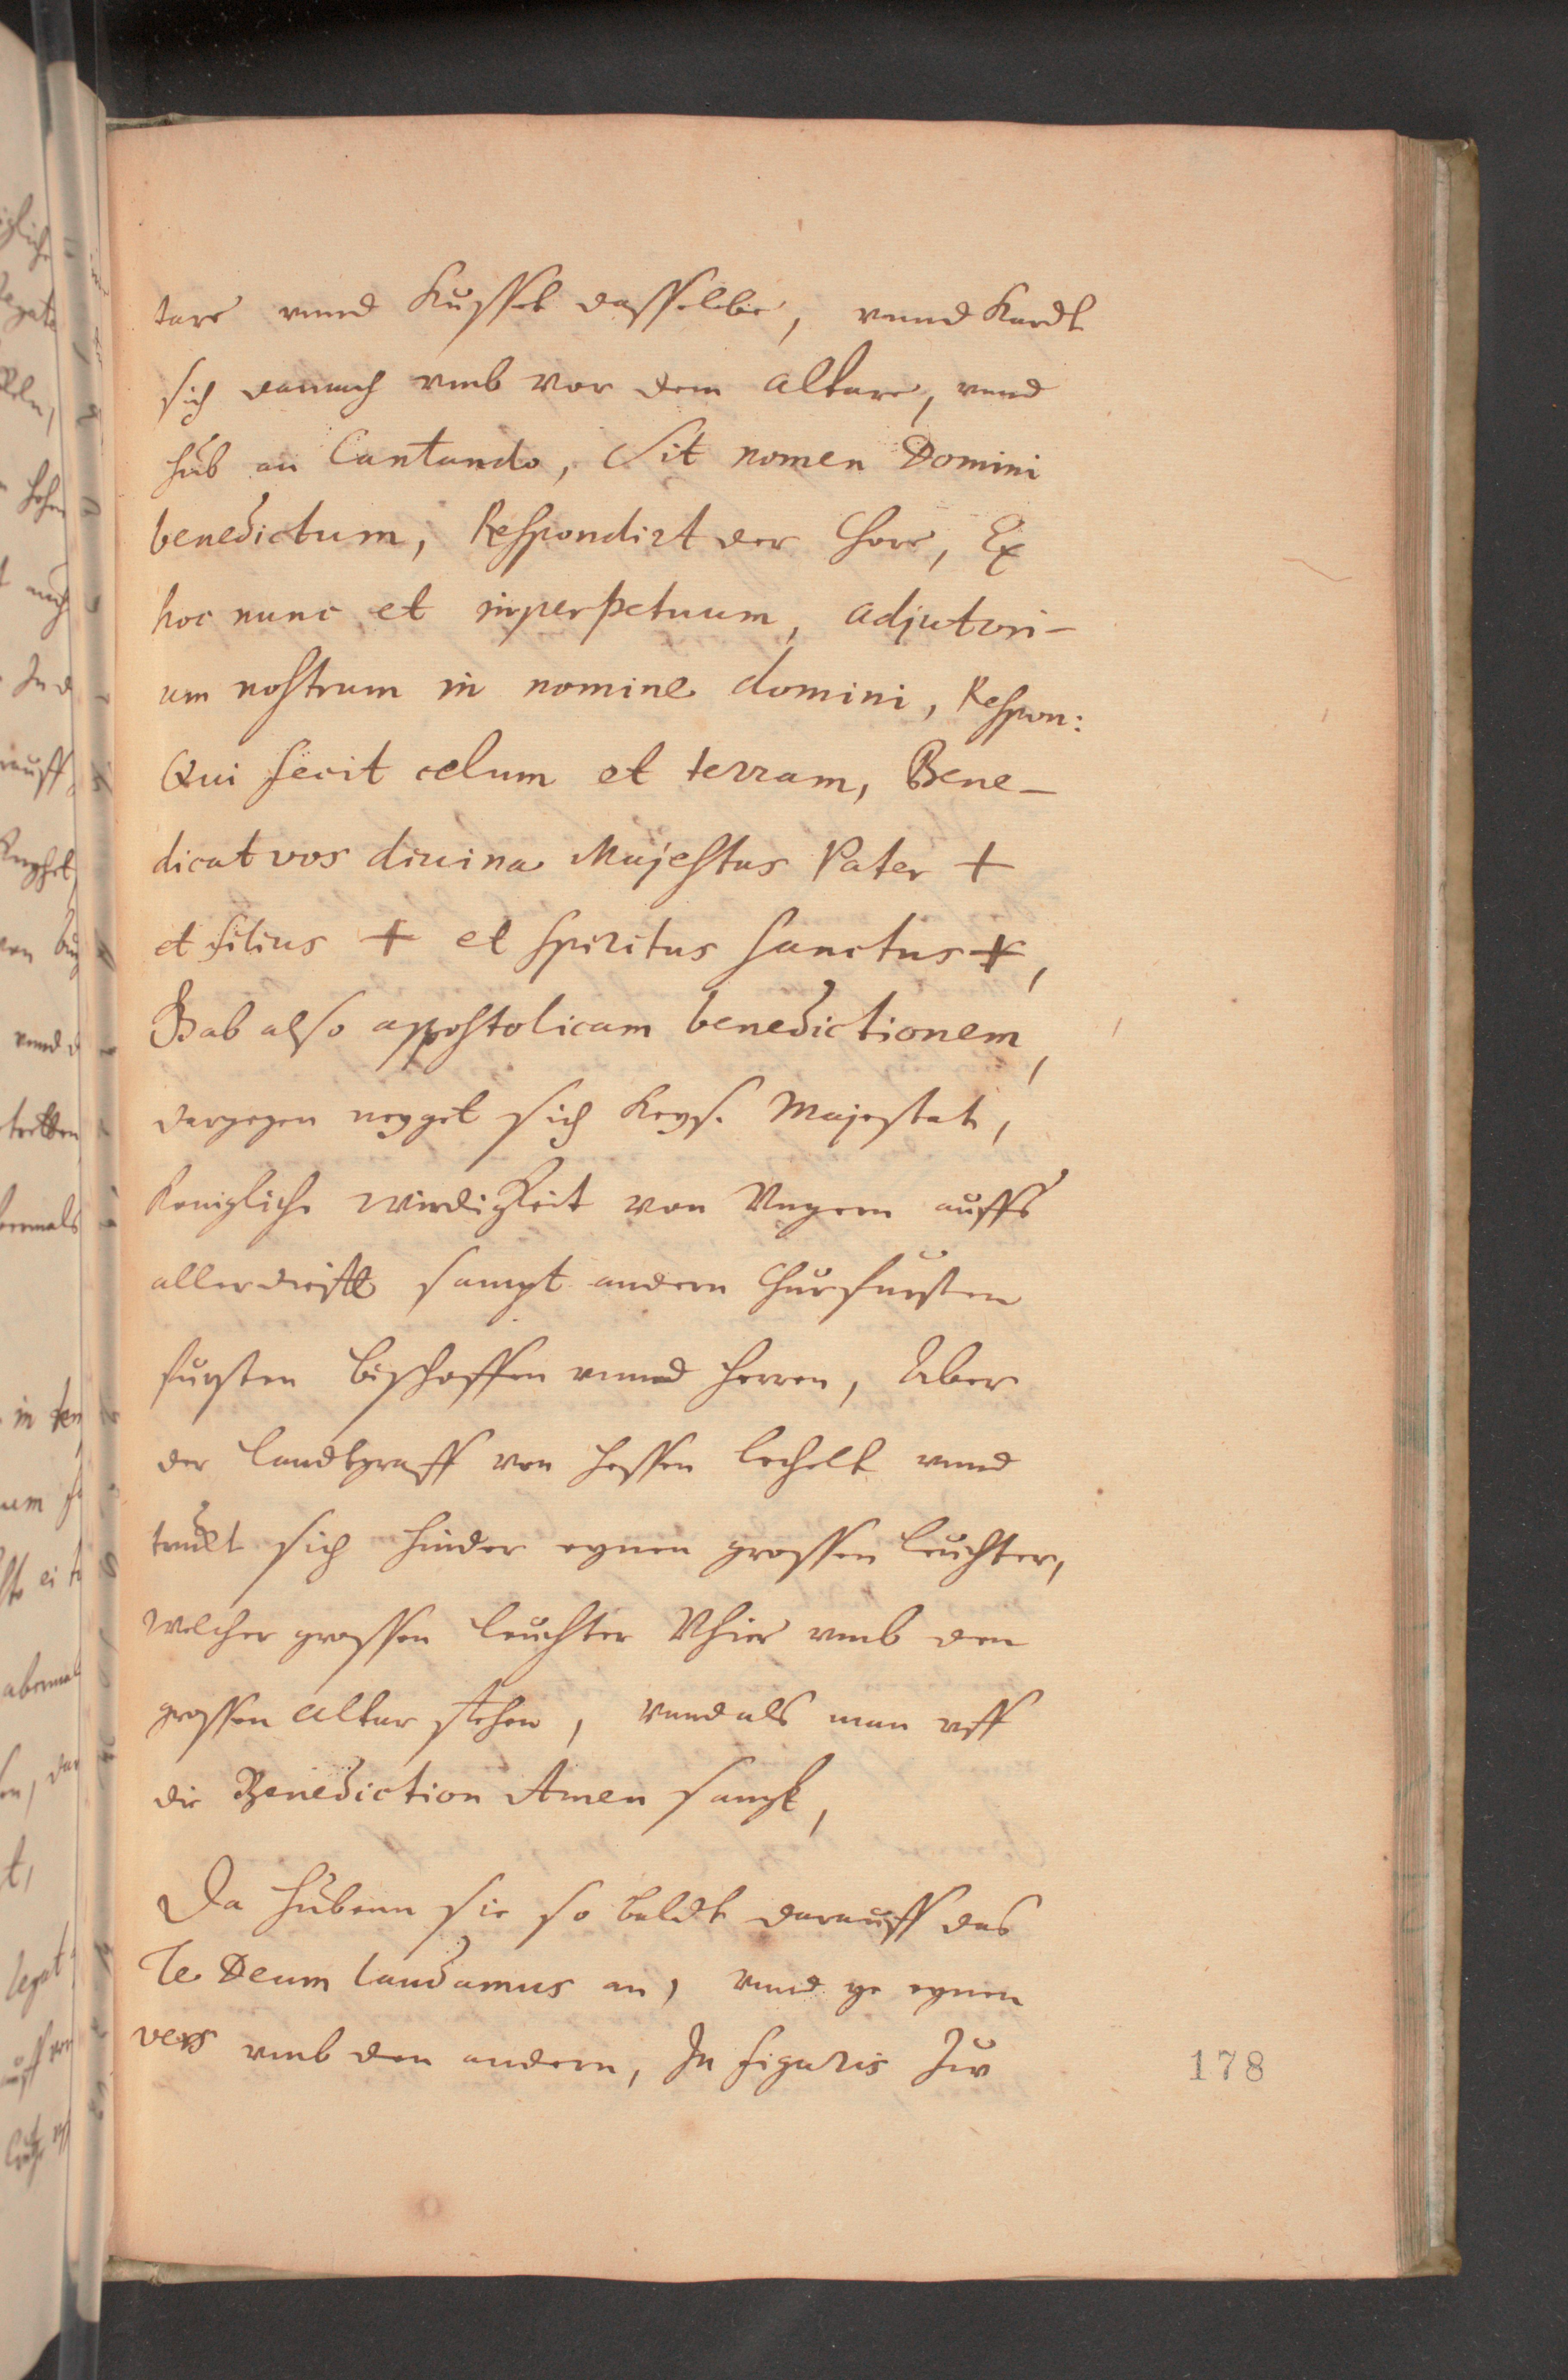 tare vnnd Kusset dasselbe, vnnd Kardt
sich darnach vmb vor dem altare, vnnd
hub an Cantando, Sit nomen Domini
benedictum, Respondirt der Chore, Ex
hoc nunc et inperpetuum, adjutori-
um nostrum in nomine domini, Respon:
Qui fecit celum et terram, Bene-
dicat vos diuina Majestas Pater +
et filius + et spiritus sanctus +,
Gab also appostolicam benedictionem,
dargegen neyget sich Keys. Majestat,
Konigliche wirdigkeit von Vngern auffs
aller sampt andern Churfursten
fursten bischoffen vnnd herren, Aber
der landtgraff von hessen lechelt vnnd
truckt sich hinder eynen grossen leuchter,
welcher grossen leuchter Vhier vmb den
grossen altar stehen, vnnd als man vff
die Benediction Amen sangk,
Da hubenn sie so baldt darauff das
Te Deum laudamus an, vnnd ye eynen
vers vmb den andern, In figuris Zw
178